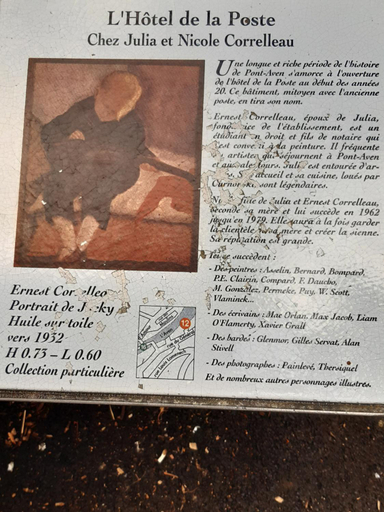 L'Hôtel de la Poste
Chez Julia et Nicole Correlleau
Une longue et riche période de l'histoire
de Pont-Aven s'amorce à l'ouverture
de l'hôtel de la Poste au début des années
20. Ce bâtiment, mitoyen avec l'ancienne
poste, en tira son nom.
Ernest Correlleau, époux de Julia,
de l'établissement, est un
étudiant en droit et fils de notaire qui
s'est à la peinture. Il fréquente
artistes qui séjournent à Pont-Aven
et entourée
accueil et sa cuisine, loués par
sont légendaires.
fille de Julia et Ernest Correlleau,
seconde sa mère et lui succède en 1962
jusqu'en 1979. Elle saura à la fois garder
la clientèle sa mère et créer la sienne.
Sa réputation est grande.
Ici se succèdent :
- Des peintres : Asselin, Bernard, Bompard,
P.E. Clairin, Compard, F. Dauchо,
M. Gonzalez, Permeke, Puy, W. Scott,
Vlaminck...
- Des écrivains : Mac Orlan, Max Jacob, Liam
O'Flamerty, Xavier Grall
- Des bardes : Glenmor, Gilles Servat, Alan
Stivell
- Des photographes : Painlevé, Thersiquel
Et de nombreux autres personnages illustres.
Ernest
Portrait de
Huile sur toile
vers 1932
H 0.73 – L 0.60
Collection particulière
12